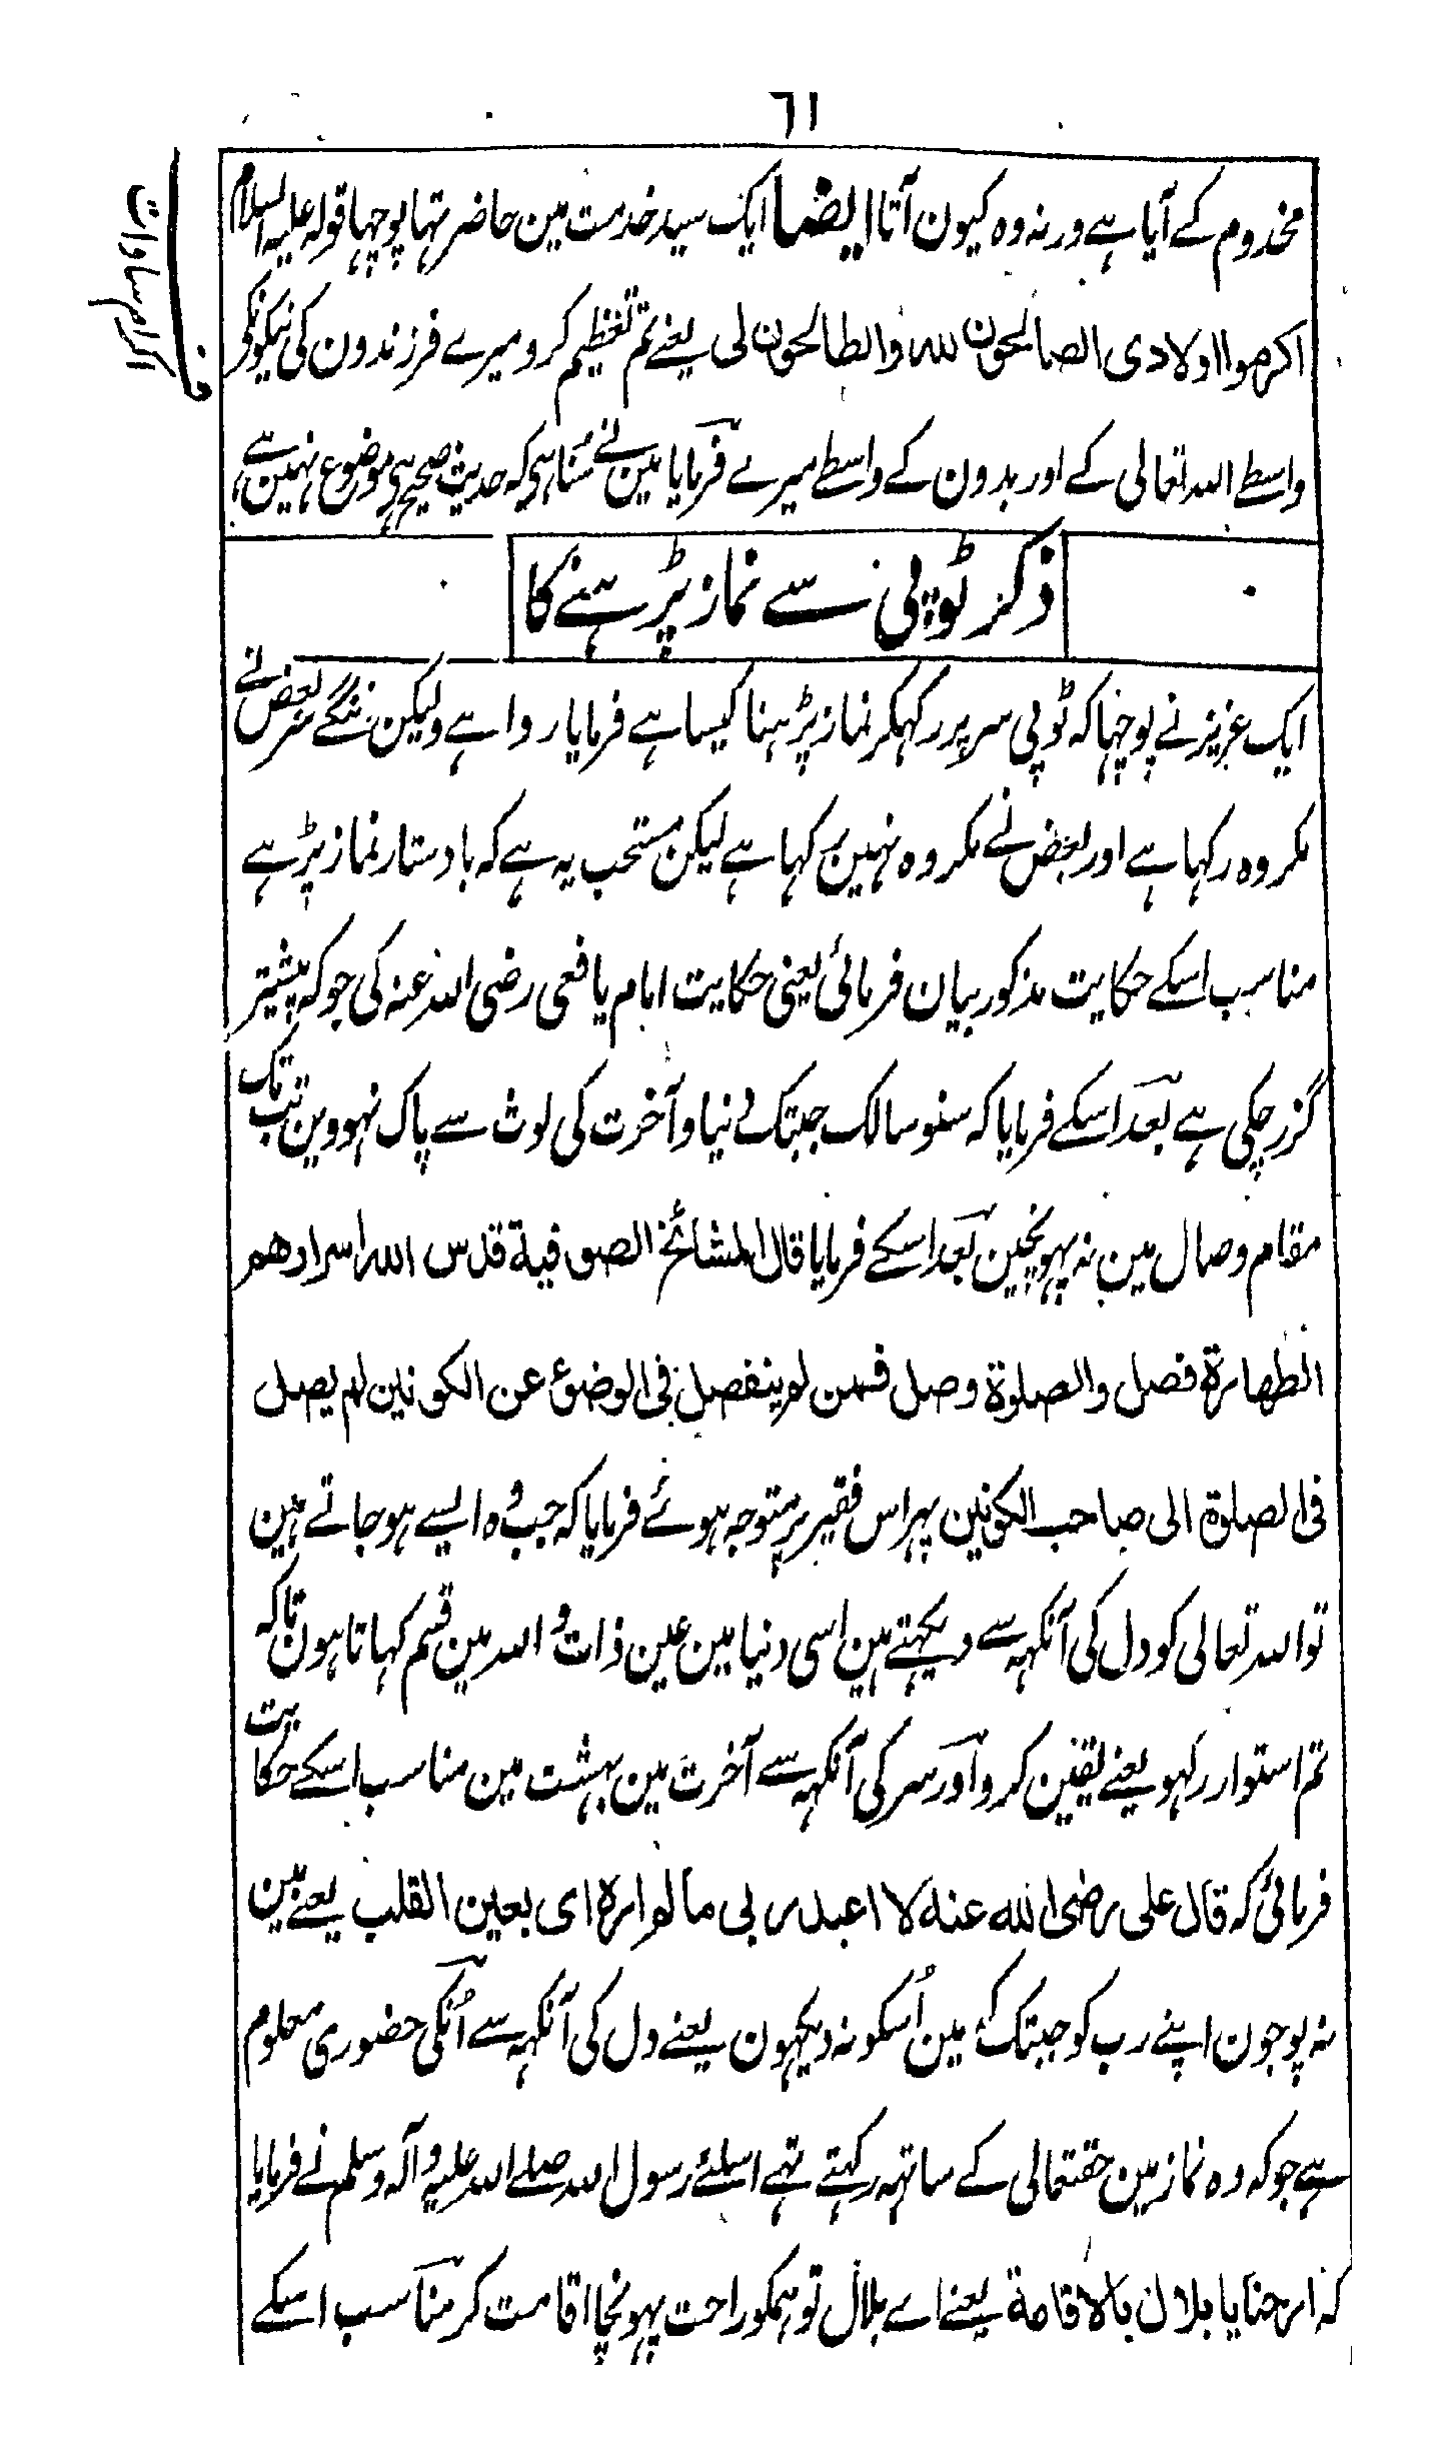 ٦١
مخدوم کے آیا ہے ورنہ وہ کیون آتا ایضا ایک سید خدمت مین حاضر تہا پوچہا قولہ علیہ السلام
اکرموا اولادی الصالحون للہ والطالحون لی یعنے تم تعظیم کرو میرے فرزندون کی نیکونکی
واسطے اللہ تعالی کے اور بدون کے واسطے میرے فرمایا مین نے سُنا ہی کہ حدیث صحیح ہی موضوع نہین ہے
اکرام سادات
ذکر ٹوپی سے نماز پڑہنے کا
ایک عزیز نے پوچہا کہ ٹوپی سر پر رکہکر نماز پڑہنا کیسا ہے فرمایا روا ہے ولیکن ننگے سر بعض نے
مکروہ رکہا ہے اور بعض نے مکروہ نہین کہا ہے لیکن مستحب یہ ہے کہ بادستار نماز پڑہے
مناسب اسکے حکایت مذکور بیان فرمائی یعنی حکایت امام یافعی رضی اللہ عنہ کی جو کہ پیشتر
گزر چکی ہے بعد اسکے فرمایا کہ سنو سالک جبتک دنیا و آخرت کی لوث سے پاک نہووین تب تک
مقام وصال مین نہ پہونچین بعد اسکے فرمایا قال المشائخ الصوفیة قدس اللہ اسرارھم
الطھارة فصل والصلوة وصل فمن لم ینفصل فی الوضوء عن الکونین لم یصل
فی الصلوة الی صاحب الکونین پہر اس فقیر پر متوجہ ہوئے فرمایا کہ جب وہ ایسے ہو جاتے ہین
تو اللہ تعالی کو دل کی آنکہہ سے دیکہتے ہین اسی دنیا مین عین ذات و اللہ مین قسم کہاتا ہون تاکہ
تم استوار رکہو یعنے یقین کرو اور سر کی آنکہہ سے آخرت مین بہشت مین مناسب اسکے حکایت
فرمائی کہ قال علی رضی اللہ عنہ لا اعبد ربی ما لم ارہ ای بعین القلب یعنے مین
نہ پوجون اپنے رب کو جبتک کہ مین اُسکو نہ دیکہون یعنے دل کی آنکہہ سے اُنکی حضوری معلوم
ہے جو کہ وہ نماز مین حقتعالی کے ساتہہ رکہتے تہے اسلئے رسول اللہ صلے اللہ علیہ و آلہ وسلم نے فرمایا
کہ ارحنا یا بلال بالاقامة یعنے اے بلال تو ہمکو راحت پہونچا اقامت کر مناسب اسکے